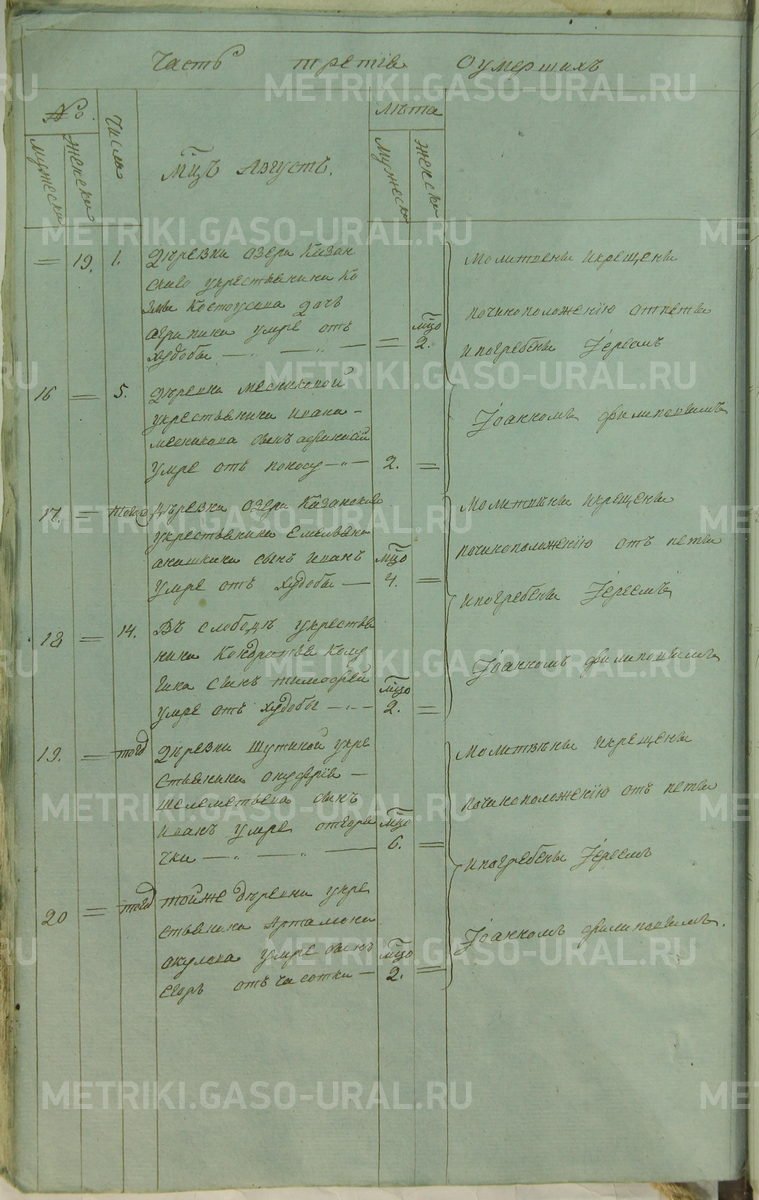 Часть третія оумершихъ
№. Лѣта
мужеска женска Числа мужеска женска
Мцъ Августъ.
= 19. 1. Деревни озера Казан
скаго укрестьянина Ко
змы Костоусова дочь
агрипина умре отъ
худобы — = мцо 2.
Молитвены икрещены
починоположенію отпеты
ипогребены Іереемъ
Іоанномъ филиповымъ
16 = 5. Деревни
укрестьянина ивана
сынъ
умре отъ поносу 2. =
17. = тогож Деревни озера Казанскаго
укрестьянина Емельяна
аникина сынъ иванъ
умре отъ худобы — мцо 4. =
Молитвены икрещены
починоположенію отъ петы
ипогребены Іереемъ
Іоанномъ филиповымъ
18 = 14. Въ слободе укрестья
нина Кондратья Калу
гина сынъ тимофей
умре отъ худобы — мцо 2. =
19. = тогд Деревни Шутиной укре
стьянина
шелеметьева сынъ
иванъ умре отгоря
чки — мцо 6. =
Молитвены икрещены
починоположенію отъ петы
ипогребены Іереемъ
Іоанномъ филиповымъ.
20 = тогд тойже деревни укре
стьянина Артамона
акулова умре сынъ
Егоръ отъ часотки — мцо 2. =
METRIKI.GASO-URAL.RU